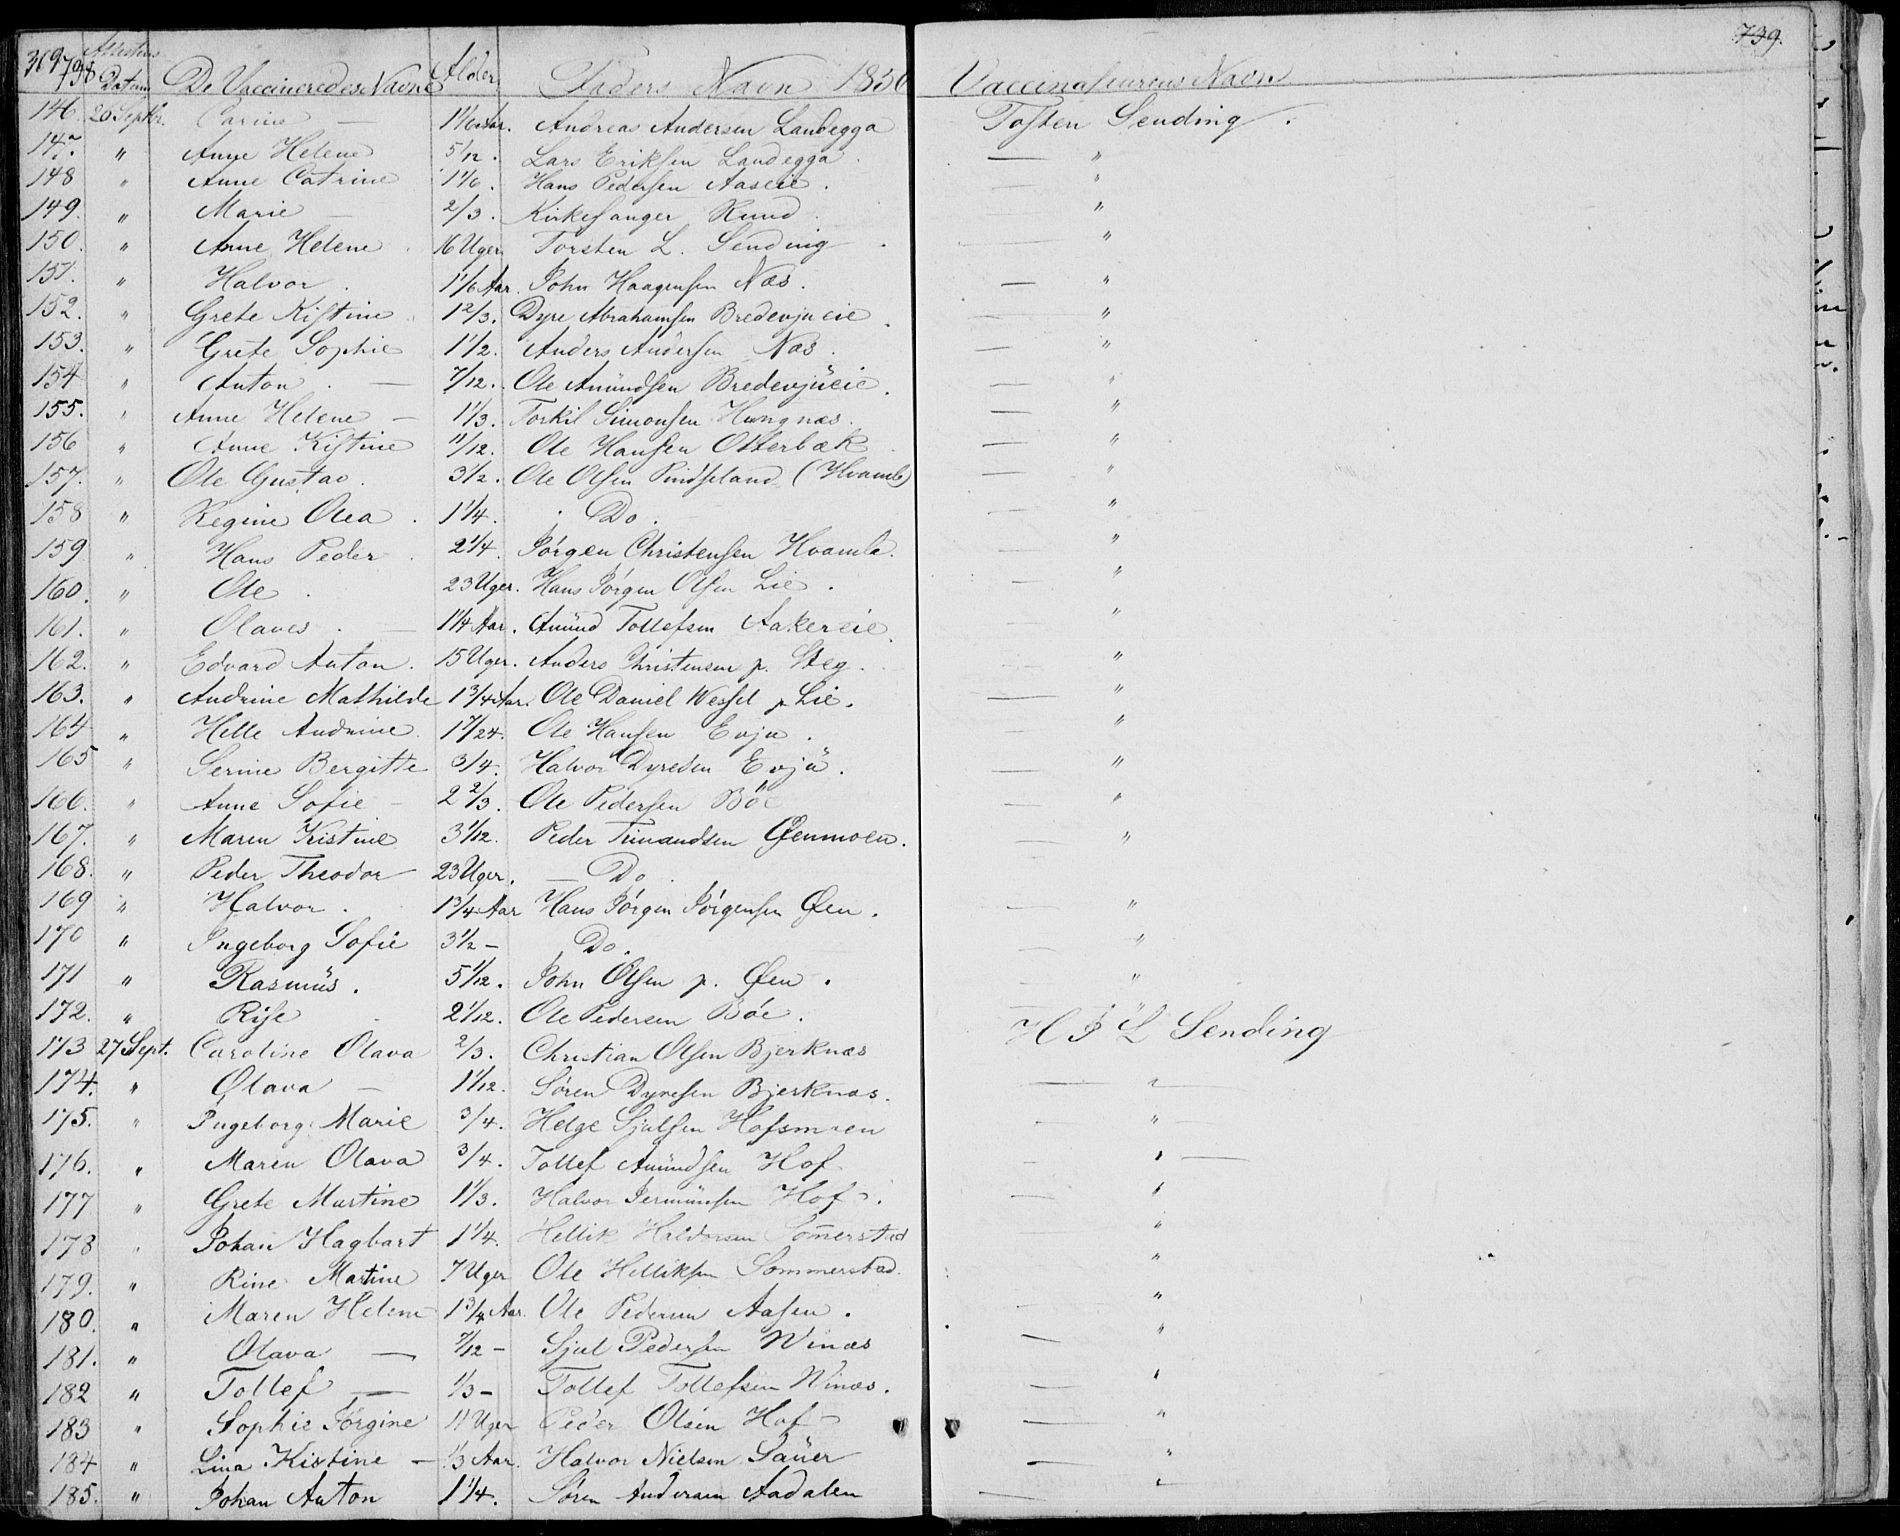 369 738 Attestens Datum De Vaccineredes Navne Alder Faders Navn 1850 Vaccinateurens Navn 739.
146. 26 Septbr. Carine — 1 1/6 Aar. Andreas Andersen Landegga Tosten Sending.
147. " Anne Helene 5/12. Lars Eriksen Landegga. — "
148 " Anne Catrine 1 1/6. Hans Pedersen Aaseie. — "
149. " Marie — 2/3. Kirkesanger Rund. — "
150. " Anne Helene. 16 Uger Torsten L. Sending. — "
151. " Halvor. 1 1/6 Aar. John Haagensen Næs. — "
152. " Grete Kistine. 1 2/3. Dyre Abrahamsen Bredevjueie. — "
153. " Grete Sophie 1 1/2. Anders Andersen Næs. — "
154 " Anton. — 7/12. Ole Amündsen Bredevjüeie. — "
155. " Anne Helene — 1 1/3. Torkil Simonsen Hengnæs. — "
156 " Anne Kistine 11/12. Ole Hansen Otterbæk — "
157. " Ole Gustav. 3 1/2. Ole Olsen Pindseland (Hvamb) — "
158 " Regine Olea. 1 1/4. Do. — "
159 " Hans Peder. 2 1/4. Jörgen Christensen Hvamb. — "
160. " Ole. 23 Uger. Hans Jörgen Olsen Lie. — "
161. " Olaves. — 1 1/4 Aar. Amünd Tollefsen Aakereie. — "
162. " Edvard Anton. 15 Uger. Anders Christensen p. Steg. — "
163. " Andrine Mathilde 1 3/4 Aar. Ole Daniel Wessel p Lie. — "
164 " Helle Andrine. 17/24. Ole Hansen Evju. — "
165 " Serine Bergitte 3/4. Halvor Dyresen Evjü. — "
166. " Anne Sofie — 2 2/3. Ole Pedersen Böe — "
167. " Maren Kistine 3 1/12. Peder Trivandsen Øenmoen. — "
168. " Peder Theodor 23 Uger. — Do.
169 " Halvor. 1 3/4 Aar Hans Jörgen Jörgensen Øen. — "
170 " Ingeborg Sofie 3 1/2 — Do. — "
171 " Rasmüs. 5 1/12. John Olsen p. Øen. — "
172. " Rise 2 1/12. Ole Pedersen Böe. — "
173 27 Sept. Caroline Olava 2/3. Christian Olsen Bjerknæs H J L Sending
174. " Olava — 1 1/12. Sören Dyresen Bjerknæs. — "
175. " Ingeborg Marie 3/4. Helge Sjulsen Hofsmoen — "
176. " Maren Olava 3/4. Tollef Amündsen Hof — " —
177 " Grete Martine 1 1/3. Halvor Jermünsen Hof. — "
178 " Johan Hagbart 1 1/4. Hellik Haldorsen Som̄erstad — "
179. " Rine Martine 7 Uger Ole Helliksen Sommerstad. — "
180. " Maren Helene 1 3/4 Aar. Ole Pedersen Aasen. — "
181. " Olava — 7/12 — Sjul Pedersen Winæs — "
182 " Tollef — 1/3 — Tollef Tollefsen Winæs. — "
183 " Sophie Jörgine 11 Uger Peder Olsen Hof — "
184 " Lina Kistine — 1/3 Aar. Halvor Nielsen Saüer — "
185. " Johan Anton 1 1/4. Sören Andersen Aadalen — "